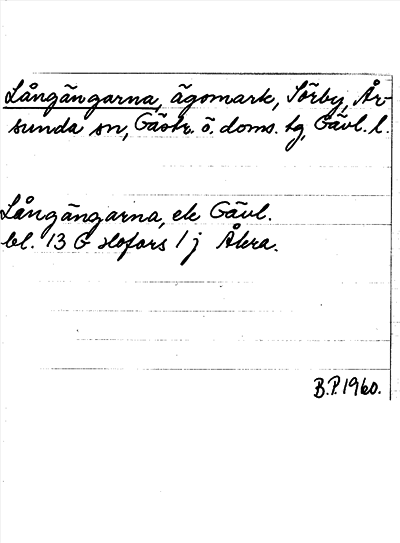 Långängarna, ägomark, Sörby, År-
sunda sn, Gästr. ö. doms. tg, Gävl. l.
Långängarna, ek Gävl.
bl. 13 G Hofors 1 j Åkra.
B.P. 1960.